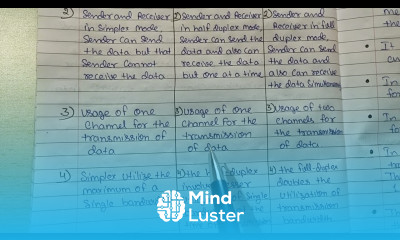 2) Sender and Receiver
in Simplex mode,
Sender Can Send
the data but that
Sender Cannot
receive the data
2) Sender and Receiver
in half duplex mode,
Sender can Send the
data and also can
receive the data
but one at a time
2) Sender and
Receiver in full
duplex mode,
Sender can Send
the data and
also can receive
the data Simultaneously
3) Usage of One
Channel for the
transmission of
data
3) Usage of one
channel for the
transmission
of data
3) Usage of two
channels for
the transmission
of data
4) Simplex utilize the
maximum of a
Single
4) the half duplex
Single
4) the full-duplex
doubles the
utilization of
transmission
the
It
In
In
Mind
Luster